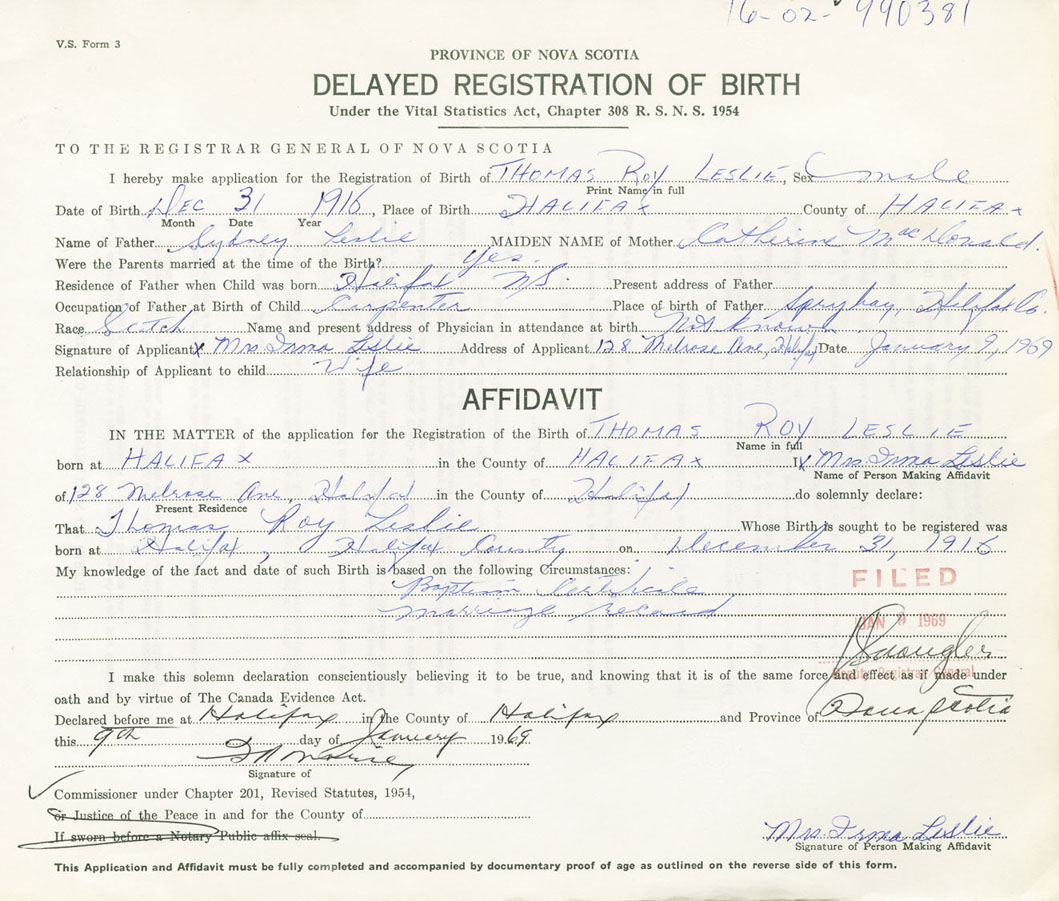 16-02-990381
V.S. Form 3
PROVINCE OF NOVA SCOTIA
DELAYED REGISTRATION OF BIRTH
Under the Vital Statistics Act, Chapter 308 R. S. N. S. 1954
TO THE REGISTRAR GENERAL OF NOVA SCOTIA
I hereby make application for the Registration of Birth of THOMAS ROY LESLIE, Sex male
Print Name in full
Date of Birth DEC 31 1916, Place of Birth HALIFAX County of HALIFAX
Month Date Year
Name of Father Sydney Leslie MAIDEN NAME of Mother Catherine MacDonald.
Were the Parents married at the time of the Birth? Yes.
Residence of Father when Child was born Halifax NS. Present address of Father
Occupation of Father at Birth of Child Carpenter Place of birth of Father Sprybay, Halifax Co.
Race Scotch Name and present address of Physician in attendance at birth Not Known
Signature of Applicant X Mrs Irma Leslie Address of Applicant 128 Melrose Ave, Halifax Date January 9, 1969
Relationship of Applicant to child Wife
AFFIDAVIT
IN THE MATTER of the application for the Registration of the Birth of THOMAS ROY LESLIE
Name in full
born at HALIFAX in the County of HALIFAX I, X Mrs Irma Leslie
Name of Person Making Affidavit
of 128 Melrose Ave, Halifax in the County of Halifax do solemnly declare:
Present Residence
That Thomas Roy Leslie Whose Birth is sought to be registered was
born at Halifax, Halifax County on December 31, 1916
My knowledge of the fact and date of such Birth is based on the following Circumstances:
Baptism Certificate
marriage record
FILED
JAN 9 1969
Deputy Registrar General
I make this solemn declaration conscientiously believing it to be true, and knowing that it is of the same force and effect as if made under
oath and by virtue of The Canada Evidence Act.
Declared before me at Halifax in the County of Halifax and Province of Nova Scotia
this 9th day of January 1969
Signature of
Commissioner under Chapter 201, Revised Statutes, 1954,
or Justice of the Peace in and for the County of
If sworn before a Notary Public affix seal.
Mrs Irma Leslie
Signature of Person Making Affidavit
This Application and Affidavit must be fully completed and accompanied by documentary proof of age as outlined on the reverse side of this form.